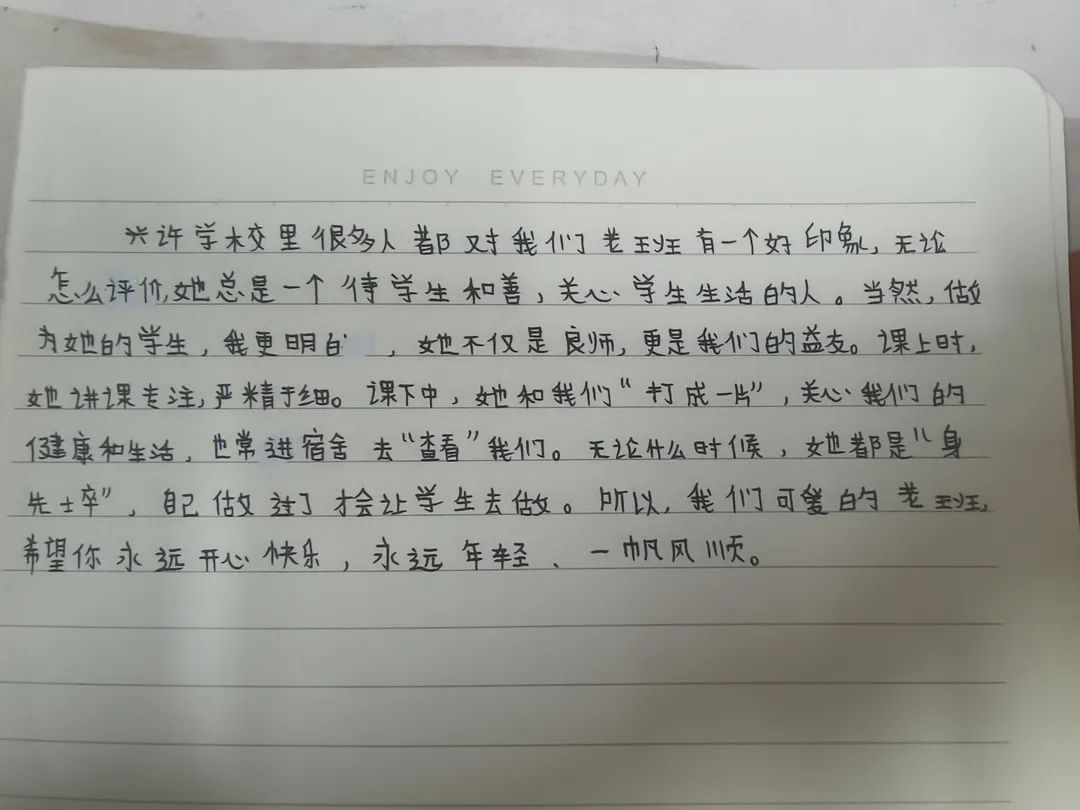 ENJOY EVERYDAY
兴许学校里很多人都对我们老班有一个好印象,无论
怎么评价,她总是一个待学生和善,关心学生生活的人。当然,做
为她的学生,我更明白,她不仅是良师,更是我们的益友。课上时,
她讲课专注,严精于细。课下中,她和我们“打成一片”,关心我们的
健康和生活,也常进宿舍去“查看”我们。无论什么时候,她都是“身
先士卒”,自己做过了才会让学生去做。所以,我们可爱的老班,
希望你永远开心快乐,永远年轻、一帆风顺。